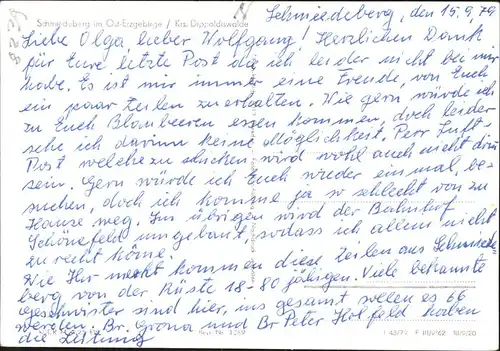 Schmiedeberg im Ost-Erzgebirge / Krs. Dippoldiswalde
Schmiedeberg, den 15.9.79
Liebe Olga, lieber Wolfgang! Herzlichen Dank
für Eure letzte Post die ich leider nicht bei mir
habe. Es ist mir immer eine Freude, von Euch
ein paar Zeilen zu erhalten. Wie gern würde ich
zu Euch Blaubeeren essen kommen, doch leider
sehe ich darinn keine Möglichkeit. Per Luft-
Post welche zu schicken wird wohl auch nicht drin
sein. Gern würde ich Euch wieder einmal be-
suchen, doch ich komme ja so schlecht von zu
Hause weg. Im übrigen wird der Bahnhof
Schönefeld umgebaut, sodass ich allein nicht
zu recht käme.
Wie Ihr merkt kommen diese Zeilen aus Schmiede
berg von der Rüste 18-80 jährigen. Viele bekannte
Geschwister sind hier, ins gesamt sollen es 66
werden. Br. Grona und Br Peter Holfeld haben
die Leitung